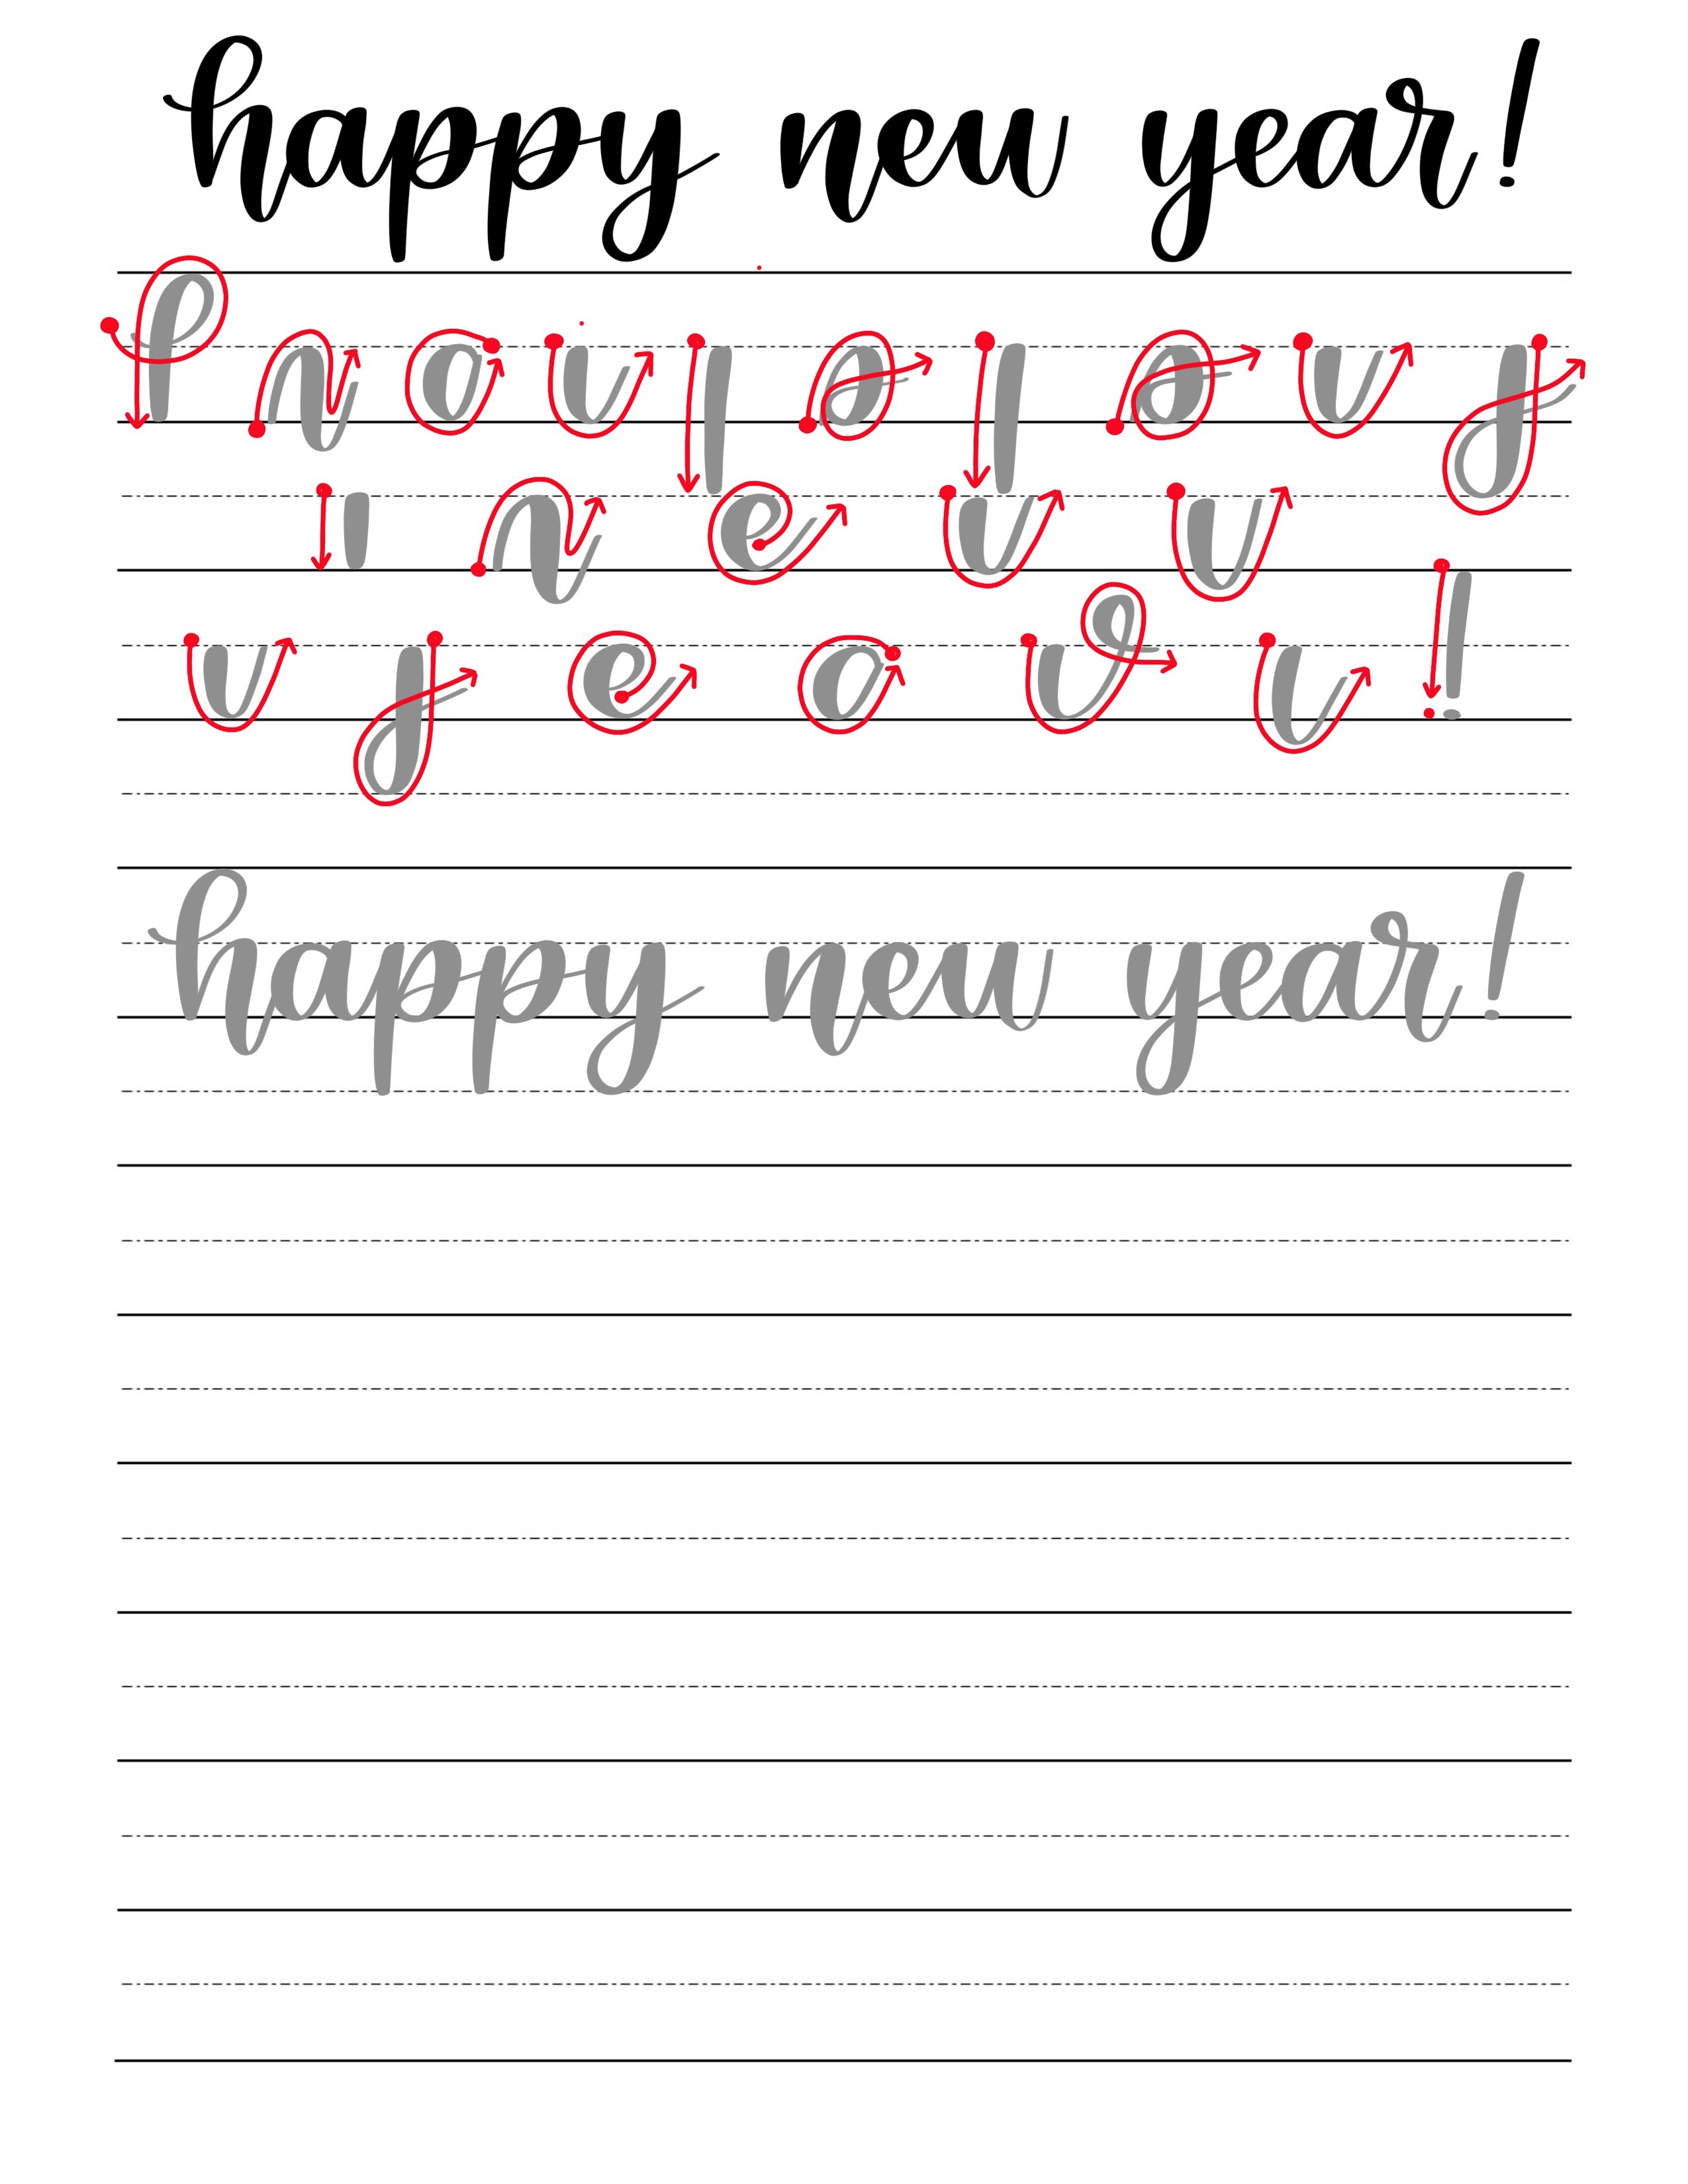 happy new year!
happy new year!